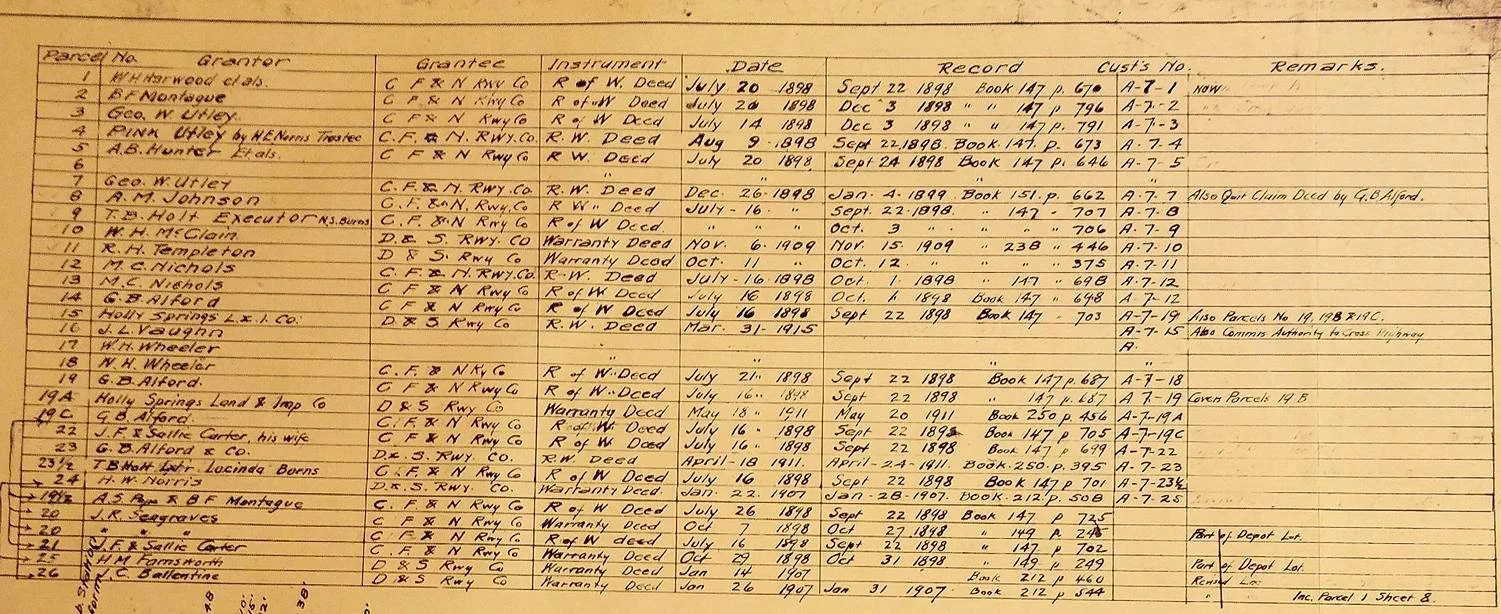 Parcel No. Grantor Grantee Instrument Date Record Cust's No. Remarks.
1 W.H. Harwood et als. C F & N Rwy Co R of W. Deed July 20 1898 Sept 22 1898 Book 147 p. 670 A-7-1 NOW
2 B F Montague C F & N Rwy Co R of W Deed July 20 1898 Dec 3 1898 " " 147 p 796 A-7-2
3 Geo. W. Utley C F & N Rwy Co R of W Deed July 14 1898 Dec 3 1898 " " 147 p. 791 A-7-3
4 Pink Utley by H.E. Norris Trustee C. F. & N. Rwy. Co. R. W. Deed Aug 9 - 1898 Sept 22, 1898. Book 147. p. 673 A-7-4
5 A.B. Hunter Et als. C F & N Rwy Co R W. Deed July 20 1898 Sept 24 1898 Book 147 p. 646 A-7-5
6 " " "
7 Geo. W. Utley C. F. & N. Rwy. Co. R. W. Deed Dec. 26 - 1898 Jan. 4 - 1899 Book 151. p. 662 A-7-7 Also Quit Claim Deed by G.B Alford.
8 A. M. Johnson C. F. & N. Rwy. Co R W " Deed July - 16 " " Sept. 22 - 1898. " 147 - 707 A-7-8
9 T. B. Holt Executor N.S. Burns C. F. & N Rwy Co. R of W Deed. " " " Oct. 3 " " " " 706 A-7-9
10 W. H. McClain D. & S. Rwy. Co Warranty Deed Nov. 6 - 1909 Nov. 15 1909 " 238 " 446 A-7-10
11 R. H. Templeton D & S. Rwy Co Warranty Deed Oct. 11 " Oct. 12. " " " " 375 A-7-11
12 M. C. Nichols C. F. & N. Rwy. Co. R-W. Deed July - 16 1898 Oct. 1 - 1898 " 147 " 698 A-7-12
13 M. C. Nichols C F & N Rwy Co R of W Deed July 16 1898 Oct. 1 1898 Book 147 " 698 A-7-12
14 G. B. Alford C F & N Rwy Co R of W Deed July 16 1898 Sept 22 1898 Book 147 - 703 A-7-19 Also Parcels No 19, 19B & 19C.
15 Holly Springs L. & I. Co. D & S Rwy Co R. W. Deed Mar. 31 - 1915 A-7-15 Also Commrs Authority to Cross Highway
16 J. L. Vaughn A.
17 W. H. Wheeler " "
18 W. H. Wheeler C. F. & N Ry Co R of W. Deed July 21 " 1898 Sept 22 1898 Book 147 p. 687 A-7-18
19 G. B. Alford. C F & N Rwy Co R of W. Deed July 16 " 1898 Sept 22 1898 " 147 p. 687 A-7-19 Covers Parcels 19 B
19A Holly Springs Land & Imp Co D & S Rwy Co Warranty Deed May 18 " 1911 May 20 1911 Book 250 p. 456 A-7-19A
19C G B. Alford. C. F & N Rwy Co R of W. Deed July 16 " 1898 Sept 22 1898 Book 147 p 705 A-7-19C
22 J. F. & Sallie Carter, his wife C F & N Rwy Co R of W Deed July 16 " 1898 Sept 22 1898 Book 147 p 699 A-7-22
23 G. B. Alford & Co. D. & S. Rwy. Co. R. W. Deed April - 18 1911. April - 24 - 1911. Book. 250. p. 395 A-7-23
23½ T B Holt Extr. Lucinda Burns C. F. & N Rwy Co R of W Deed July 16 1898 Sept 22 1898 Book 147 p 701 A-7-23½
24 H. W. Norris D. & S. Rwy. Co. Warranty Deed. Jan. 22. 1907 Jan - 28 - 1907. Book. 212. p. 508 A-7-25
19½ A. S. Pope & B F Montague C. F & N Rwy Co R of W Deed July 26 1898 Sept 22 1898 Book 147 p 725
20 J. R. Seagraves C F & N Rwy Co Warranty Deed Oct 7 1898 Oct 27 1898 " 149 p. 245 Part of Depot Lot.
20 " " C. F. & N Rwy Co R of W deed July 16 1898 Sept 22 " 147 p 702
21 J. F. & Sallie Carter C F. & N Rwy Co Warranty Deed Oct 29 1898 Oct 31 1898 " 149 p 249 Part of Depot Lot.
25 H M Farnsworth D & S Rwy Co Warranty Deed Jan 14 1907 Book 212 p 460 Revised
26 C. Ballentine D & S Rwy Co Warranty Deed Jan 26 1907 Jan 31 1907 Book 212 p 544 " Inc. Parcel 1 Sheet 8.